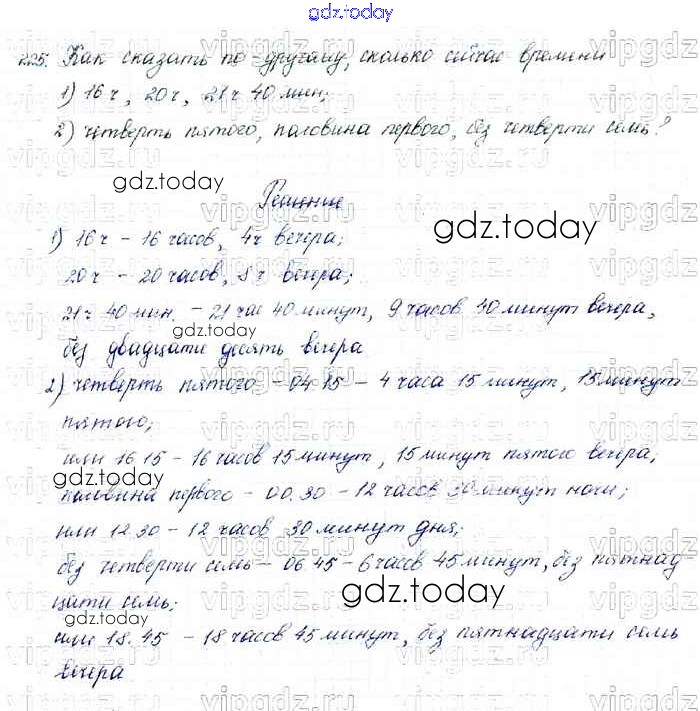 gdz.today
225. Как сказать по-другому, сколько сейчас времени
1) 16 ч, 20 ч, 21 ч 40 мин;
2) четверть пятого, половина первого, без четверти семь?
gdz.today
Решение
gdz.today
1) 16 ч – 16 часов, 4 ч вечера;
20 ч – 20 часов, 8 ч вечера;
21 ч 40 мин. – 21 час 40 минут, 9 часов 40 минут вечера,
gdz.today
без двадцати десять вечера
2) четверть пятого – 04 15 – 4 часа 15 минут, 15 минут
пятого;
или 16 15 – 16 часов 15 минут, 15 минут пятого вечера;
gdz.today
половина первого – 00.30 – 12 часов 30 минут ночи;
или 12.30 – 12 часов 30 минут дня;
без четверти семь – 06 45 – 6 часов 45 минут, без пятнад-
gdz.today
цати семь;
или 18.45 – 18 часов 45 минут, без пятнадцати семь
вечера
vipgdz.ru